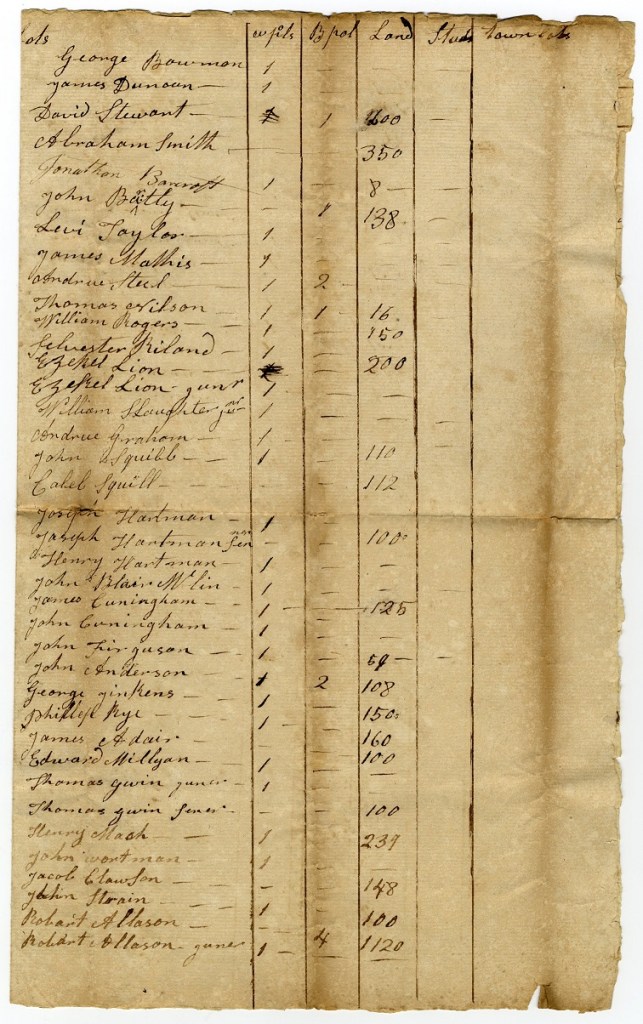 wpls B pol Land Studs town lots
George Bowman 1
James Duncan — 1 —
David Stewart — 1 400
Abraham Smith — 350
Jonathan Barcroft 1 — 8 —
John Baitly — 1 138
Levi Taylor — 1 —
James Mathis — 1 —
Andrue Steel — 1 2 —
Thomas Nilson 1 1 16
William Rogers — 1 — 150
Selvester Riland — 1 —
Ezekel Lion — 200
Ezekel Lion — gunr 1
William Slaughter
Andrue Graham — 1 —
John Squibb — 1 — 110
Caleb Squill — — 112
Joseph Hartman — 1
Joseph Hartman Sen — 100
Henry Hartman — 1 —
John Blair Mclin — 1 —
James Cuningham — 1 — 125
John Cuningham 1 —
John Firguson — 1 — 59 —
John Anderson — 1 2 108
George Jinkens — 1 — 150
Phillip Kye — 1 —
James Adair — 160
Edward Millyan — 1 — 100
Thomas Gwin guner — 1 —
Thomas gwin sener — 100
Henry Mach — 1 — 239
John wortman — 1
Jacob Clawson — 148
John Strain — 1
Robart Allason — 100
Robart Allason — guner 1 4 1120